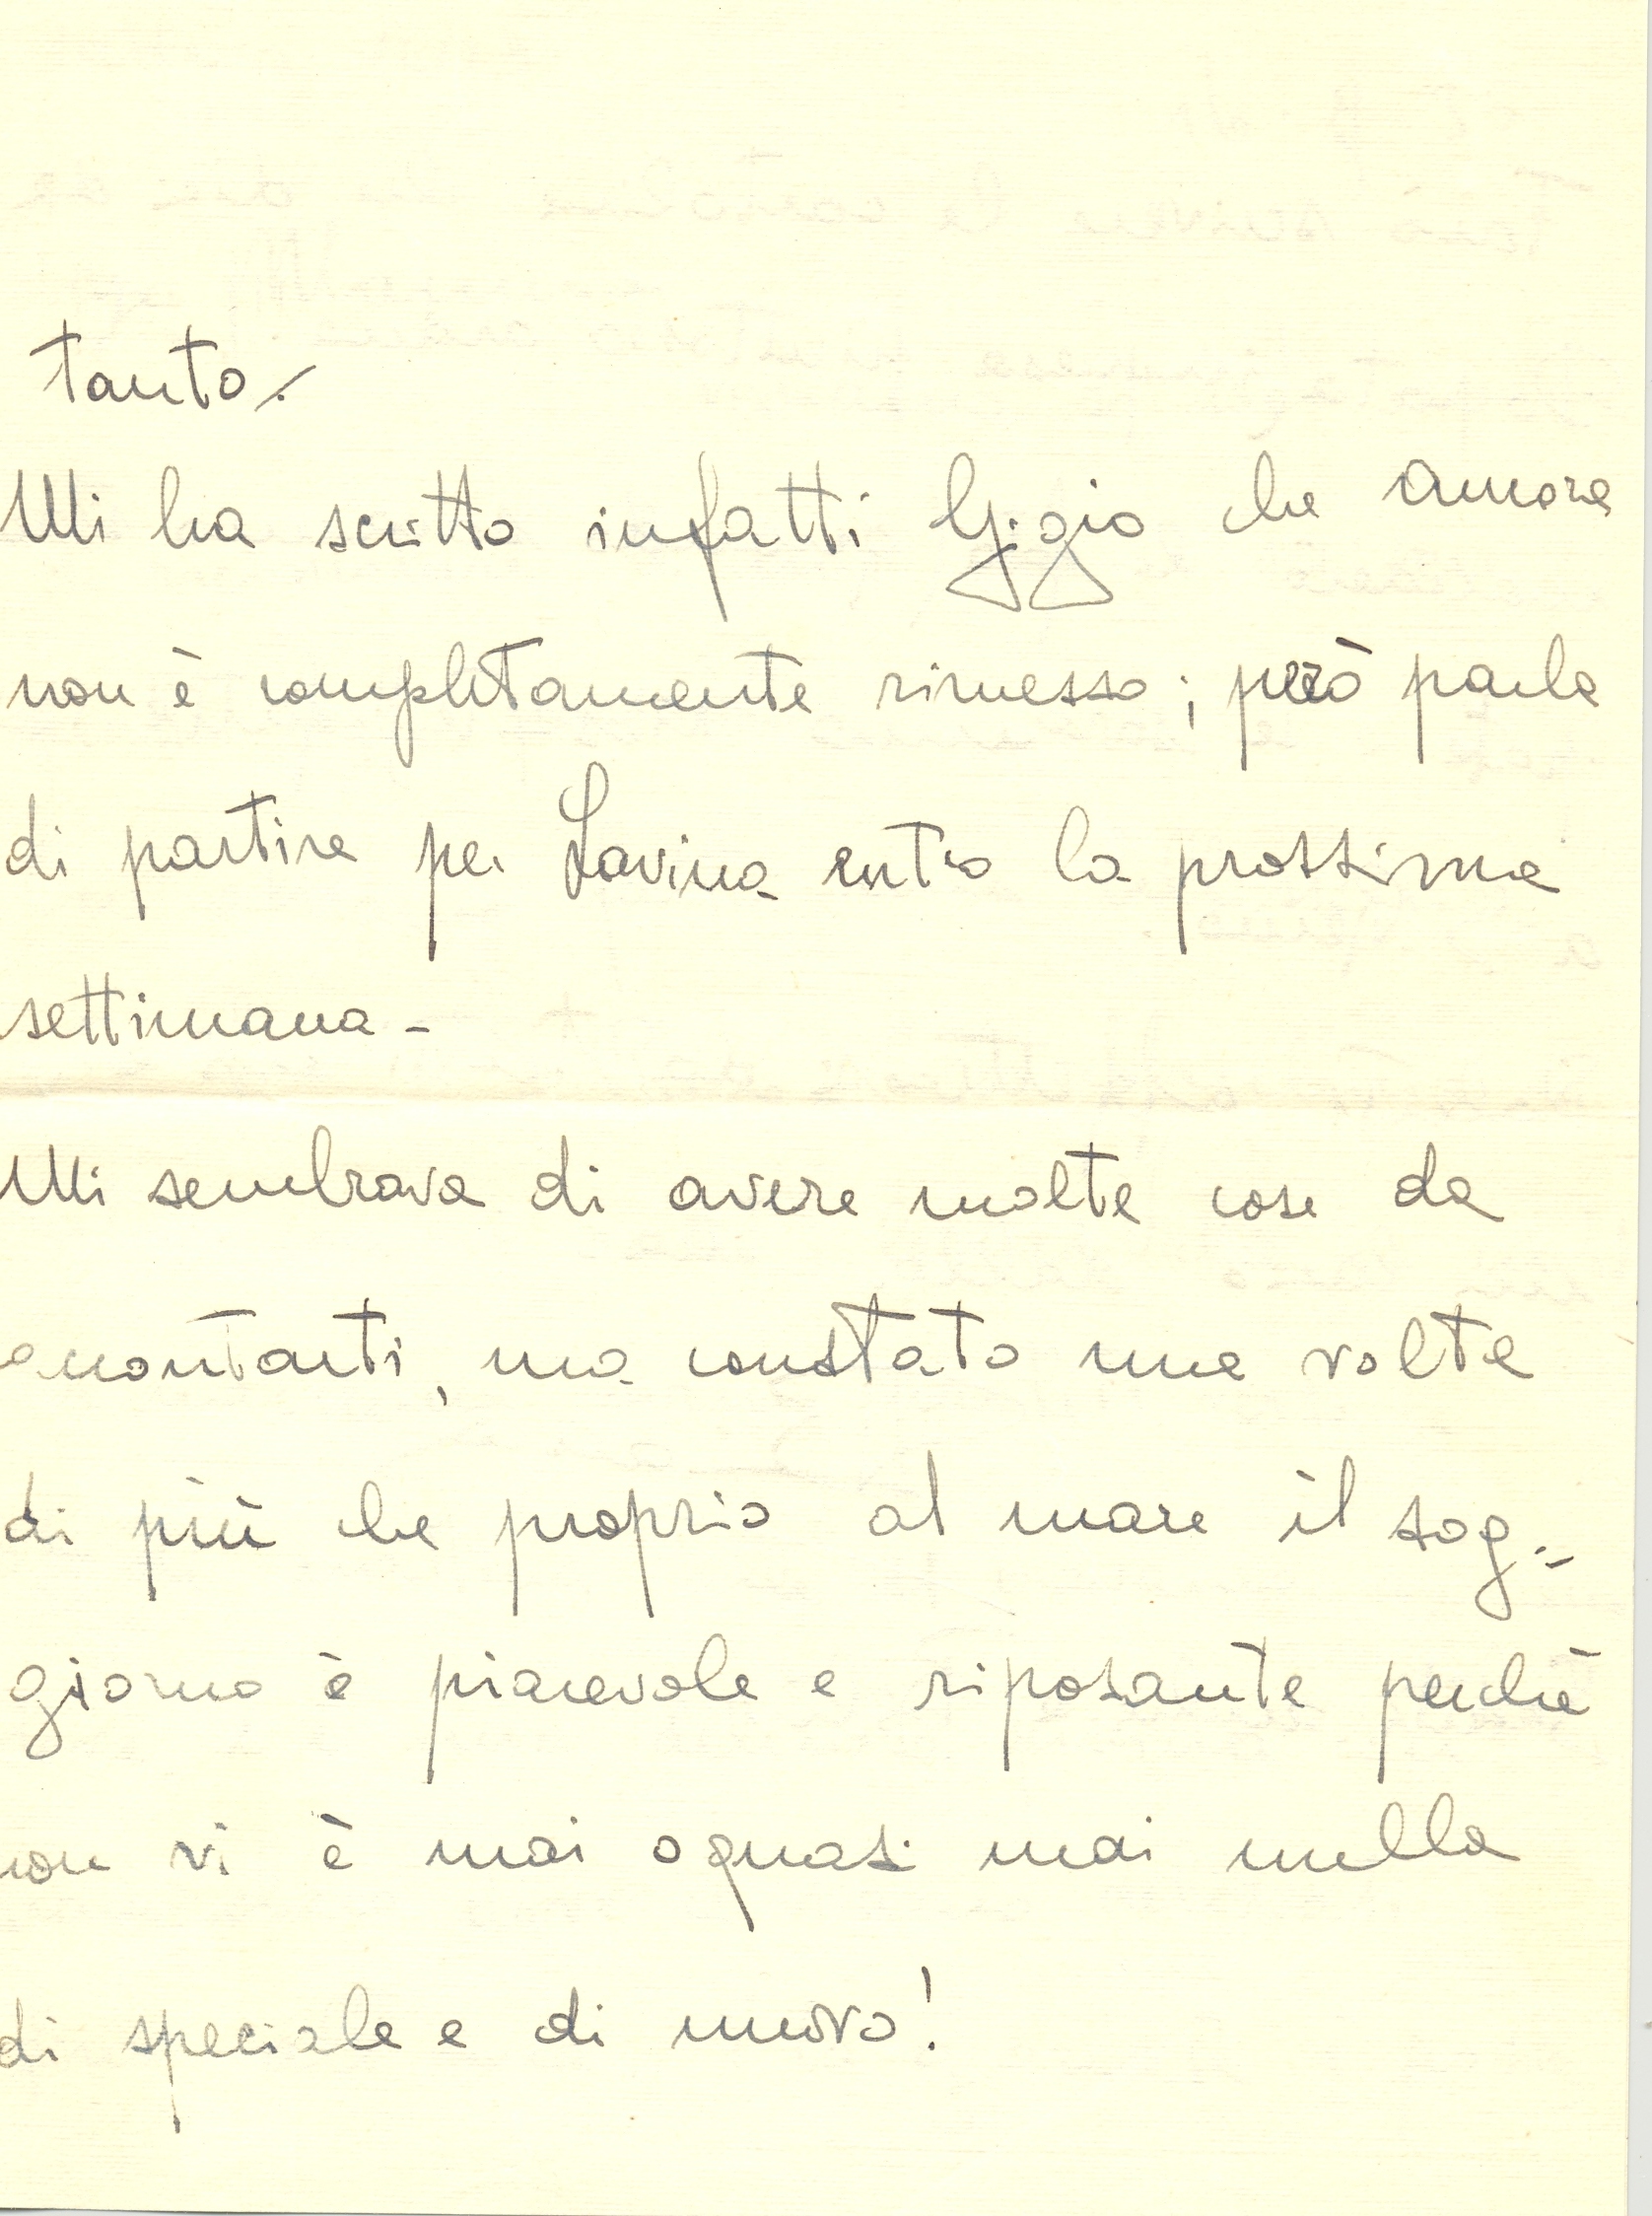 tanto.
Mi ha scritto infatti Gigio che ancora
non è completamente rimesso; però parla
di partire per Lavina entro la prossima
settimana -
Mi sembrava di avere molte cose da
raccontarti, ma constato una volta
di più che proprio al mare il sog=
giorno è piacevole e riposante perchè
non vi è mai o quasi mai nulla
di speciale e di nuovo!